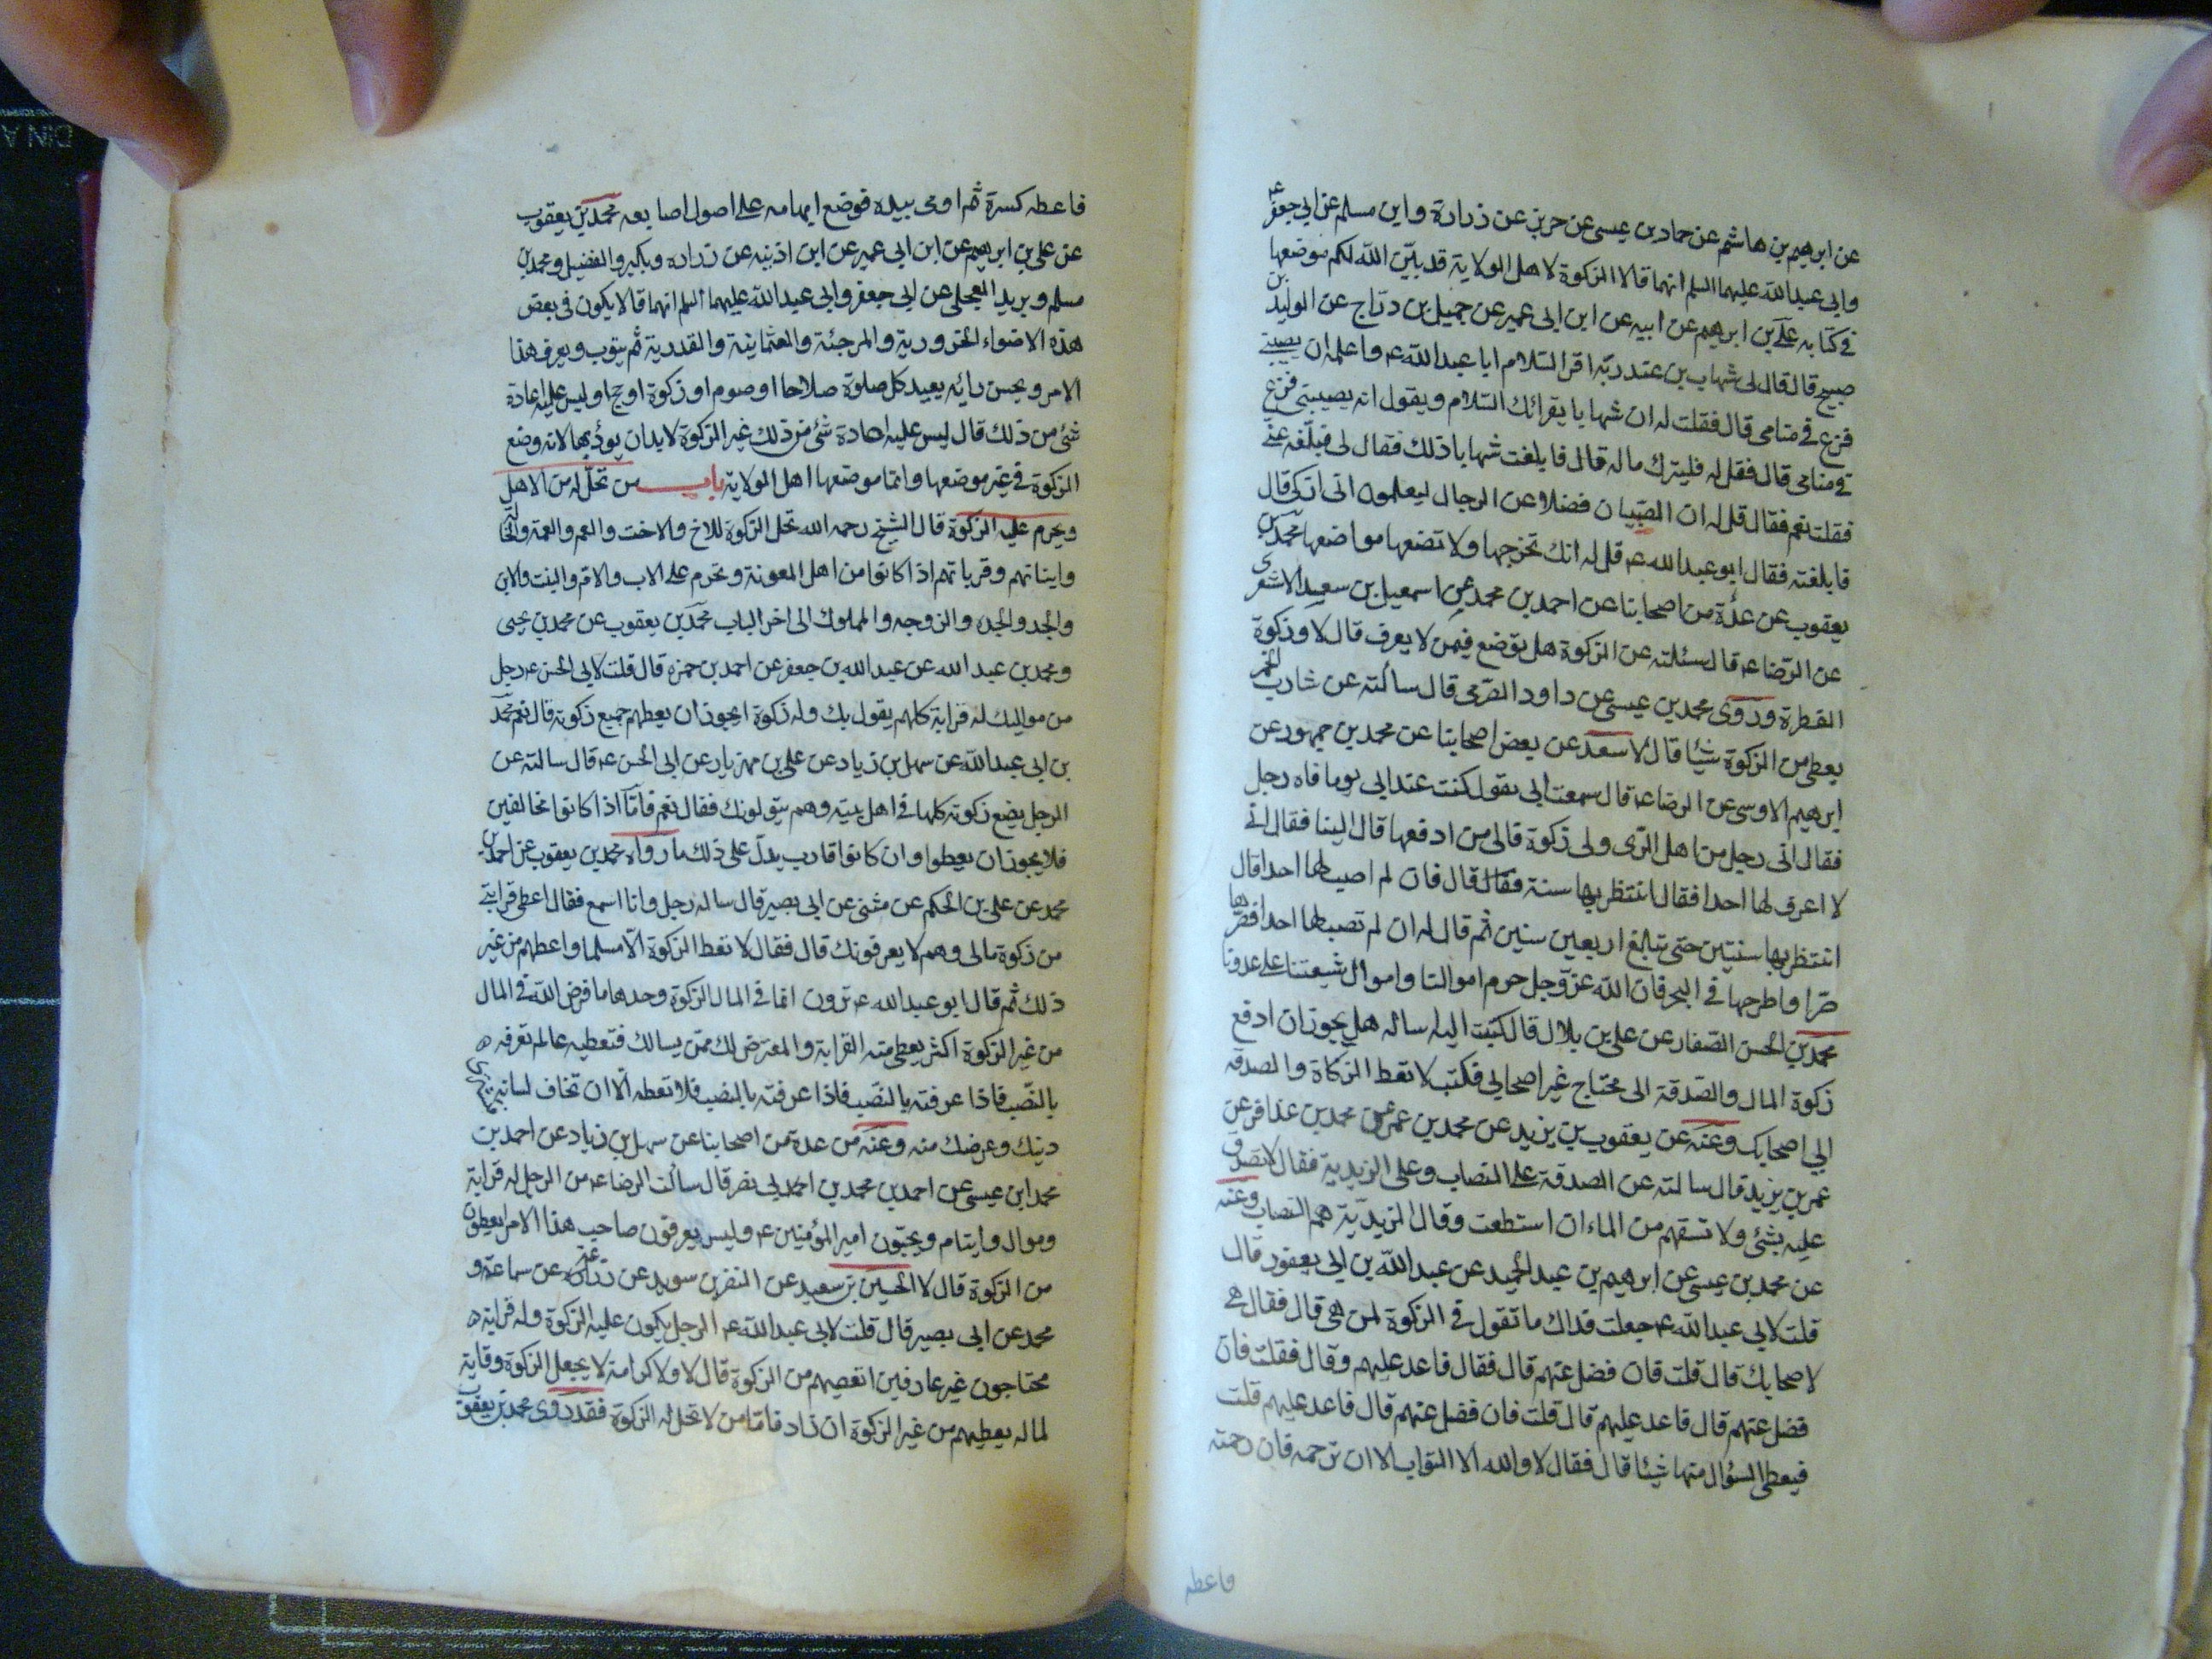 عن ابرهيم بن هاشم عن حماد بن عيسى عن حريز عن زرارة وابن مسلم عن ابي جعفر ع
وابي عبدالله عليهما السلم انهما قالا الزكوة لاهل الولاية قد بيّن الله لكم موضعها
في كتابه علي بن ابرهيم عن ابيه عن ابن ابي عمير عن جميل بن درّاج عن الوليد بن
صبيح قال قال لى شهاب بن عبد ربّه اقرا السّلام ابا عبدالله ع واعلمه ان يصيبنى
فزع في منامى قال فقلت له ان شهابا يقرائك السّلام ويقول انه يصيبنى فزع
في منامى قال فقل له فليترك ماله قال فابلغت شهابا ذلك فقال لى فبلّغه عنّى
فقلت نعم فقال قل له ان الصّبيان فضلا عن الرجال ليعلمون انى ازكى قال
فابلغته فقال ابو عبدالله ع قل له انك تخرجها ولا تضعها مواضعها محمّد بن
يعقوب عن عدّة من اصحابنا عن احمد بن محمد عن اسمعيل بن سعيد الاشعرى
عن الرّضا ع قال سئلته عن الزكوة هل توضع فيمن لا يعرف قال لا ولا زكوة
الفطرة وروى محمد بن عيسى عن داود الصّرمى قال سألته عن شارب الخمر
يعطى من الزكوة شيئا قال لا سعد عن بعض اصحابنا عن محمد بن جمهور عن
ابرهيم الاوسى عن الرضا ع قال سمعت ابى يقول كنت عند ابى يوما فاه رجل
فقال انى رجل من اهل الرّى ولى زكوة فالى من ادفعها قال الينا فقال انى
لا اعرف لها احدا فقال انتظر بها سنة فقال قال فان لم اصب لها احدا قال
انتظر بها سنتين حتى تبلغ اربعين سنين ثم قال له ان لم تصب لها احدا فصرّها
صرّا واطرحها في البحر فان الله عزّوجل حرم اموالنا واموال شيعتنا على عدونا
محمّد بن الحسن الصّفار عن على بن بلال قال كتبت اليه اساله هل يجوز ان ادفع
زكوة المال والصّدقة الى محتاج غير اصحابى فكتب لا تعط الزكاة والصدقة
الى اصحابك وعنه عن يعقوب بن يزيد عن محمد بن عمر عن محمد بن عذافر عن
عمر بن يزيد قال سالته عن الصدقة على النصاب وعلى الزيدية فقال لا تصدق
عليه بشئ ولا تسقهم من الماء ان استطعت وقال الزيديّة هم النصاب وعنه
عن محمد بن عيسى عن ابرهيم بن عبد الحميد عن عبدالله بن ابى يعفور قال
قلت لابى عبدالله ع جعلت فداك ما تقول في الزكوة لمن هى قال فقال هى
لاصحابك قال قلت فان فضل عنهم قال فقال فاعد عليهم وقال فقلت فان
فضل عنهم قال فاعد عليهم قال قلت فان فضل عنهم قال فاعد عليهم قلت
فيعطى السؤال منها شيئا قال فقال لا والله الا التراب الا ان ترحمه فان رحمته
فاعطه
فاعطه كسرة ثم اومى بيده فوضع ابهامه على اصول اصابعه محمّد بن يعقوب
عن على بن ابرهيم عن ابن ابى عمير عن ابن اذينه عن زراره وبكير والفضيل ومحمد بن
مسلم وبريد العجلى عن ابى جعفر وابى عبدالله عليهما السلم انهما قالا يكون فى بعض
هذه الاهواء الحروريّة والمرجئة والعثمانية والقدرية ثم يتوب ويعرف هذا
الامر ويحسن رايه يعيد كل صلوة صلاحا او صوم او زكوة او حج او ليس عليه اعادة
شئ من ذلك قال ليس عليه اعادة شئ من ذلك غير الزكوة لابد ان يؤدّيها لانه وضع
الزكوة في غير موضعها وانما موضعها اهل الولاية باب من تحلّ له من الاهل
ويحرم عليه الزكوة قال الشيخ رحمه الله تحل الزكوة للاخ والاخت والعم والعمة والخالة
وابنائهم وقرباتهم اذا كانوا من اهل المعونة وتحرم على الاب والام والبنت والابن
والجد والجده والزوجه والمملوك الى اخر الباب محمّد بن يعقوب عن محمد بن يحيى
ومحمد بن عبد الله عن عبد الله بن جعفر عن احمد بن حمزه قال قلت لابى الحسن ع رجل
من مواليك له قرابة كلهم يقول بك وله زكوة ايجوز ان يعطهم جميع زكوته قال نعم محمّد
بن ابى عبدالله عن سهل بن زياد عن على بن مهزيار عن ابى الحسن ع قال سالته عن
الرجل يضع زكوته كلها في اهل بيته وهم يتولونك فقال نعم فامّا اذا كانوا مخالفين
فلا يجوز ان يعطوا وان كانوا اقارب يدلّ على ذلك ما رواه محمد بن يعقوب عن احمد بن
محمد عن على بن الحكم عن مثنى عن ابى بصير قال ساله رجل وانا اسمع فقال اعطى قرابتى
من زكوة مالى وهم لا يعرفونك قال فقال لا تعط الزكوة الّا مسلما واعطهم من غير
ذلك ثم قال ابو عبدالله ع ترون انما في المال الزكوة وحدها ما فرض الله في المال
من غير الزكوة اكثر يعطى منه القرابة والمعترض لك ممّن يسالك فتعطيه عالم تعرفه ه
بالنّصب فاذا عرفته بالنصب فاذا عرفته بالنصب فلا تعطه الّا ان تخاف لسانه
دينك وعرضك منه وعنه عن عدة من اصحابنا عن سهل بن زياد عن احمد بن
محمد ابن عيسى عن احمد بن محمد بن احمد ابى نصر قال سألت الرضا ع من الرجل له قرابة
وموال وايتام ويحبّون امير المؤمنين ع وليس يعرفون صاحب هذا الامر ايعطون
من الزكوة قال لا الحسين بن سعيد عن النضر بن سويد عن زرعة عن سماعة و
محمد عن ابى بصير قال قلت لابى عبدالله ع الرجل يكون عليه الزكوة وله قرابة ه
محتاجون غير عارفين ايعصيهم من الزكوة قال لا ولا كرامة لا يجعل الزكوة وقاية
لماله يعطيهم من غير الزكوة ان زاد فامّا من لا تحل له الزكوة فقد روى محمد بن يعقوب